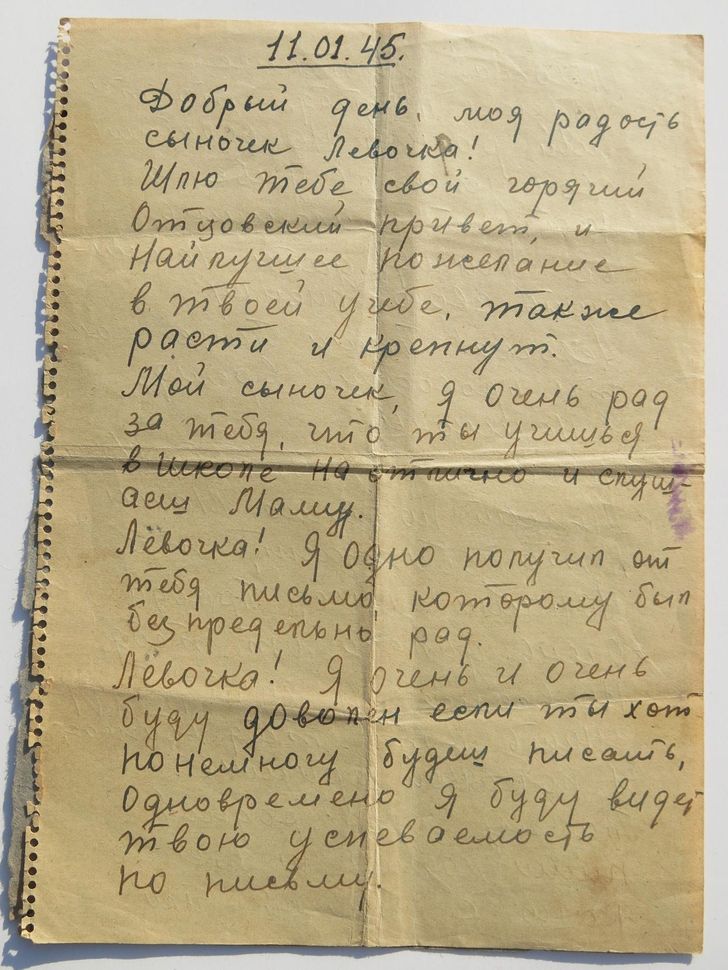 11.01.45.
Добрый день, моя радость
сыночек Левочка!
Шлю тебе свой горячий
Отцовский привет, и
Наилучшее пожелание
в твоей учебе, также
расти и крепнут.
Мой сыночек, я очень рад
за тебя, что ты учишься
в школе на отлично и слуш-
аеш Маму.
Лёвочка! Я одно получил от
тебя письмо, которому был
безпредельно рад.
Лёвочка! Я очень и очень
буду доволен если ты хот
понемногу будеш писать,
Одновремено я буду видет
твою успеваемость
по письму.